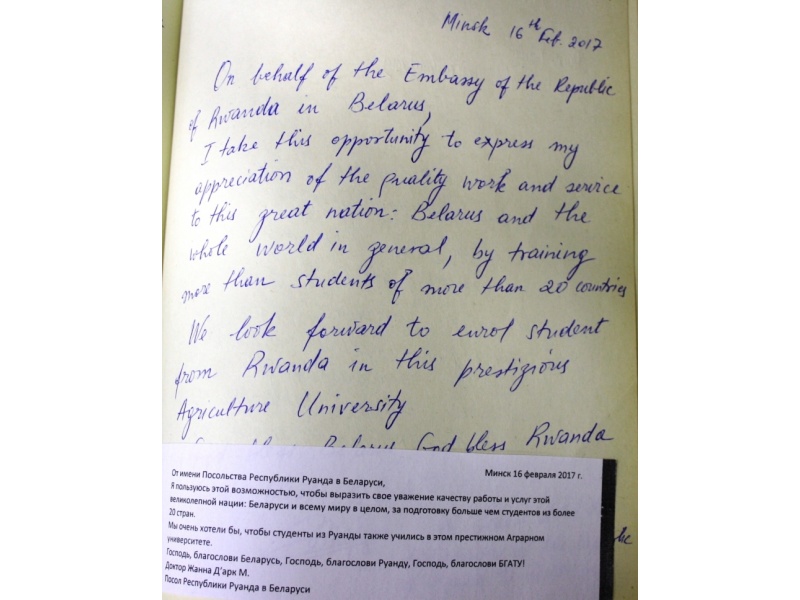 Minsk 16th Feb. 2017
On behalf of the Embassy of the Republic
of Rwanda in Belarus,
I take this opportunity to express my
appreciation of the quality work and service
to this great nation: Belarus and the
whole world in general, by training
more than students of more than 20 countries
We look forward to enrol student
from Rwanda in this prestigious
Agriculture University
Belarus God bless Rwanda
От имени Посольства Республики Руанда в Беларуси, Минск 16 февраля 2017 г.
Я пользуюсь этой возможностью, чтобы выразить свое уважение качеству работы и услуг этой
великолепной нации: Беларуси и всему миру в целом, за подготовку больше чем студентов из более
20 стран.
Мы очень хотели бы, чтобы студенты из Руанды также учились в этом престижном Аграрном
университете.
Господь, благослови Беларусь, Господь, благослови Руанду, Господь, благослови БГАТУ!
Доктор Жанна Д'арк М.
Посол Республики Руанда в Беларуси